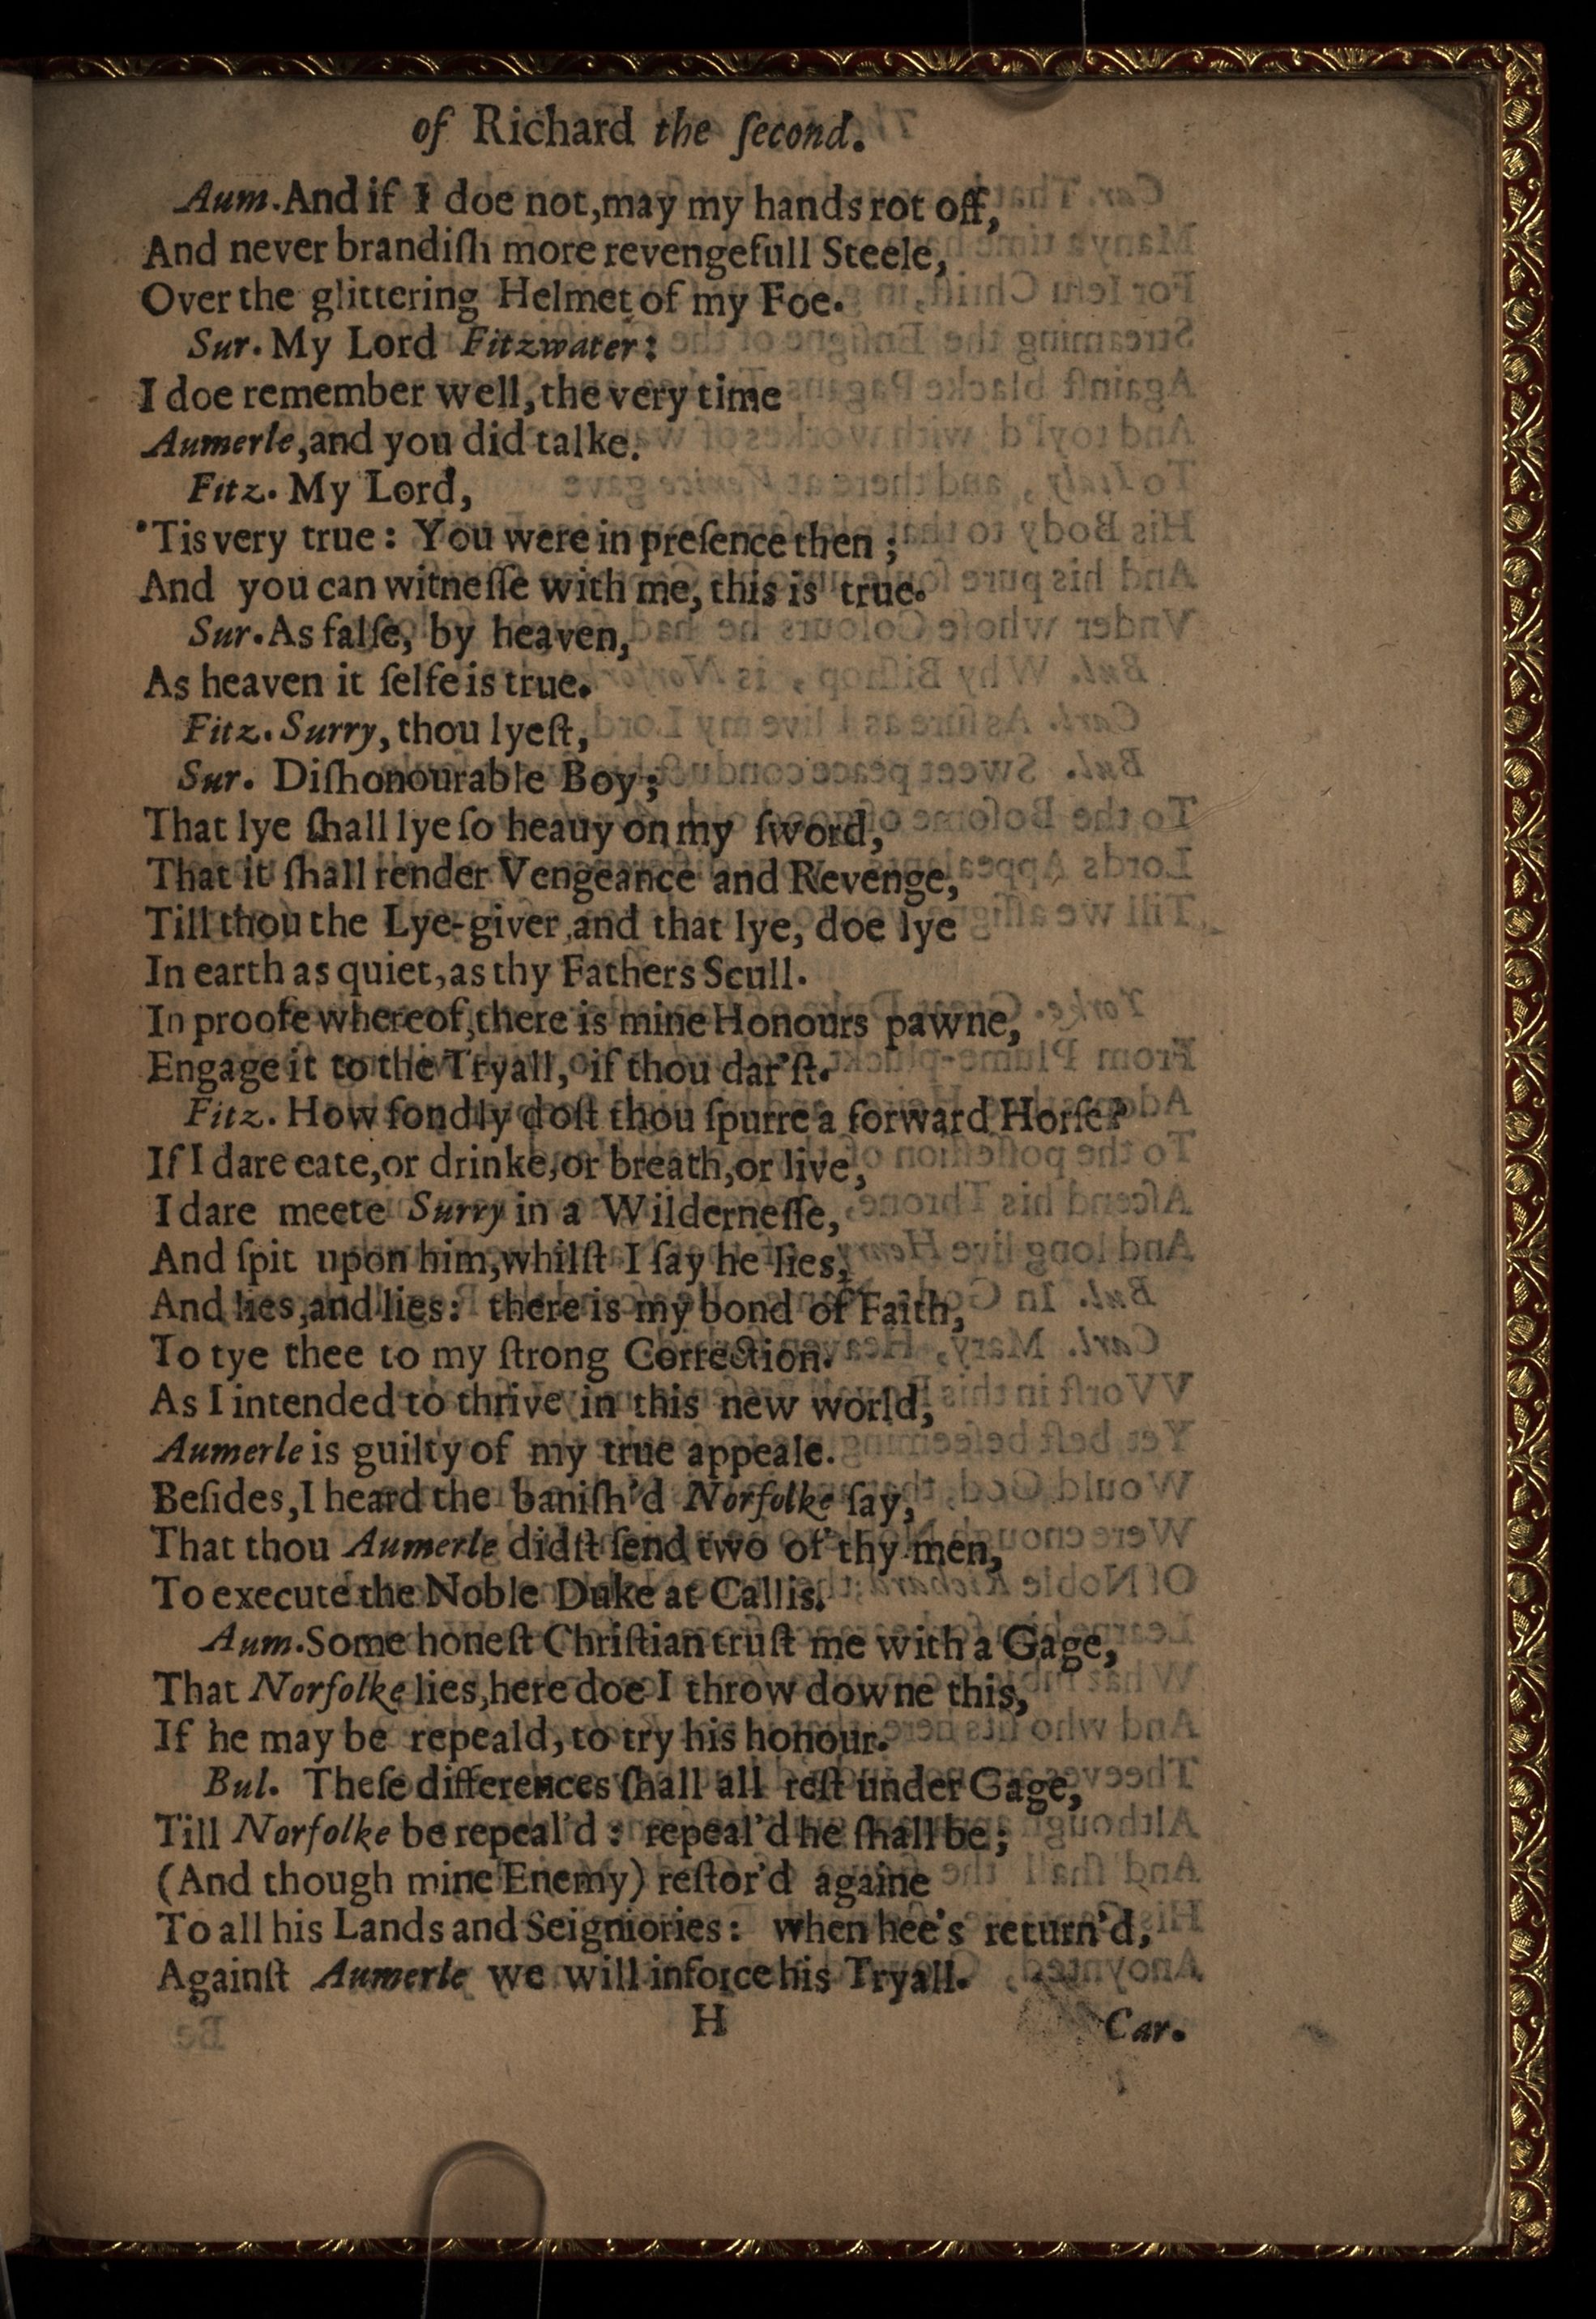 of Richard the ſecond.
Aum. And if I doe not, may my hands rot off,
And never brandiſh more revengefull Steele,
Over the glittering Helmet of my Foe.
Sur. My Lord Fitzwater:
I doe remember well, the very time
Aumerle, and you did talke.
Fitz. My Lord,
'Tis very true: You were in preſence then;
And you can witneſſe with me, this is true.
Sur. As falſe, by heaven,
As heaven it ſelfe is true.
Fitz. Surry, thou lyeſt,
Sur. Diſhonourable Boy;
That lye ſhall lye ſo heauy on my ſword,
That it ſhall render Vengeance and Revenge,
Till thou the Lye-giver, and that lye, doe lye
In earth as quiet, as thy Fathers Scull.
In proofe whereof, there is mine Honours pawne,
Engage it to the Tryall, if thou dar'ſt.
Fitz. How fondly doſt thou ſpurre a forward Horſe?
If I dare eate, or drinke, or breath, or live,
I dare meete Surry in a Wilderneſſe,
And ſpit upon him, whilſt I ſay he lies,
And lies, and lies: there is my bond of Faith,
To tye thee to my ſtrong Correction.
As I intended to thrive in this new world,
Aumerle is guilty of my true appeale.
Beſides, I heard the baniſh'd Norfolke ſay,
That thou Aumerle didſt ſend two of thy men,
To execute the Noble Duke at Callis.
Aum. Some honeſt Chriſtian truſt me with a Gage,
That Norfolke lies, here doe I throw downe this,
If he may be repeald, to try his honour.
Bul. Theſe differences ſhall all reſt under Gage,
Till Norfolke be repeal'd: repeal'd he ſhall be;
(And though mine Enemy) reſtor'd againe
To all his Lands and Seigniories: when hee's return'd,
Againſt Aumerle we will inforce his Tryall.
H
Car.